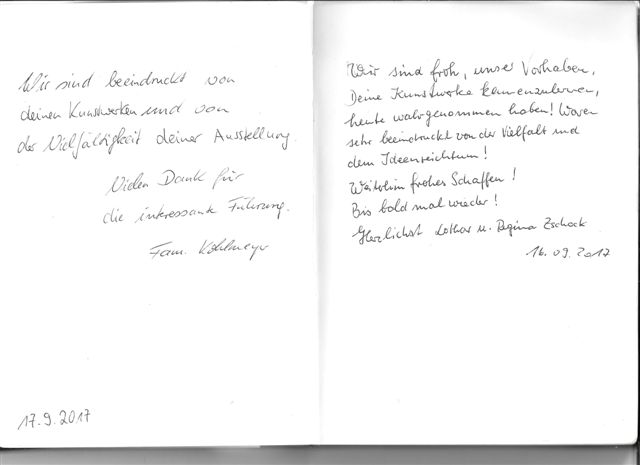 Wir sind beeindruckt von
deinen Kunstwerken und von
der Vielfältigkeit deiner Ausstellung.
Vielen Dank für
die interessante Führung.
Fam. Kohlmeyer
17.9.2017
Wir sind froh, unser Vorhaben,
Deine Kunstwerke kennenzulernen,
heute wahrgenommen haben! Waren
sehr beeindruckt von der Vielfalt und
dem Ideenreichtum!
Weiterhin frohes Schaffen!
Bis bald mal wieder!
Herzlichst Lothar u. Regina Zschock
16.09.2017